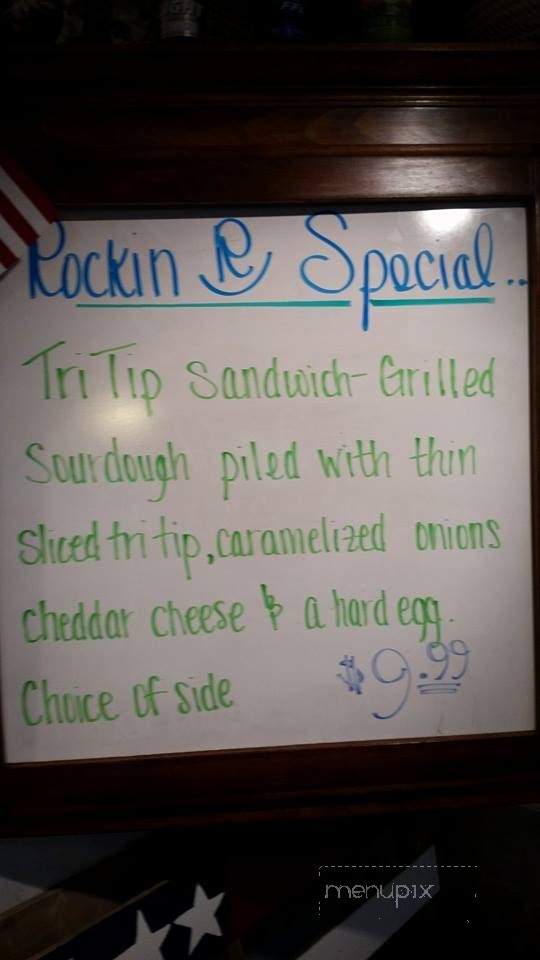 Rockin R Special..
Tri Tip Sandwich- Grilled
Sourdough piled with thin
Sliced tri tip, caramelized onions
Cheddar cheese & a hard egg.
Choice of side $9.99
menupix